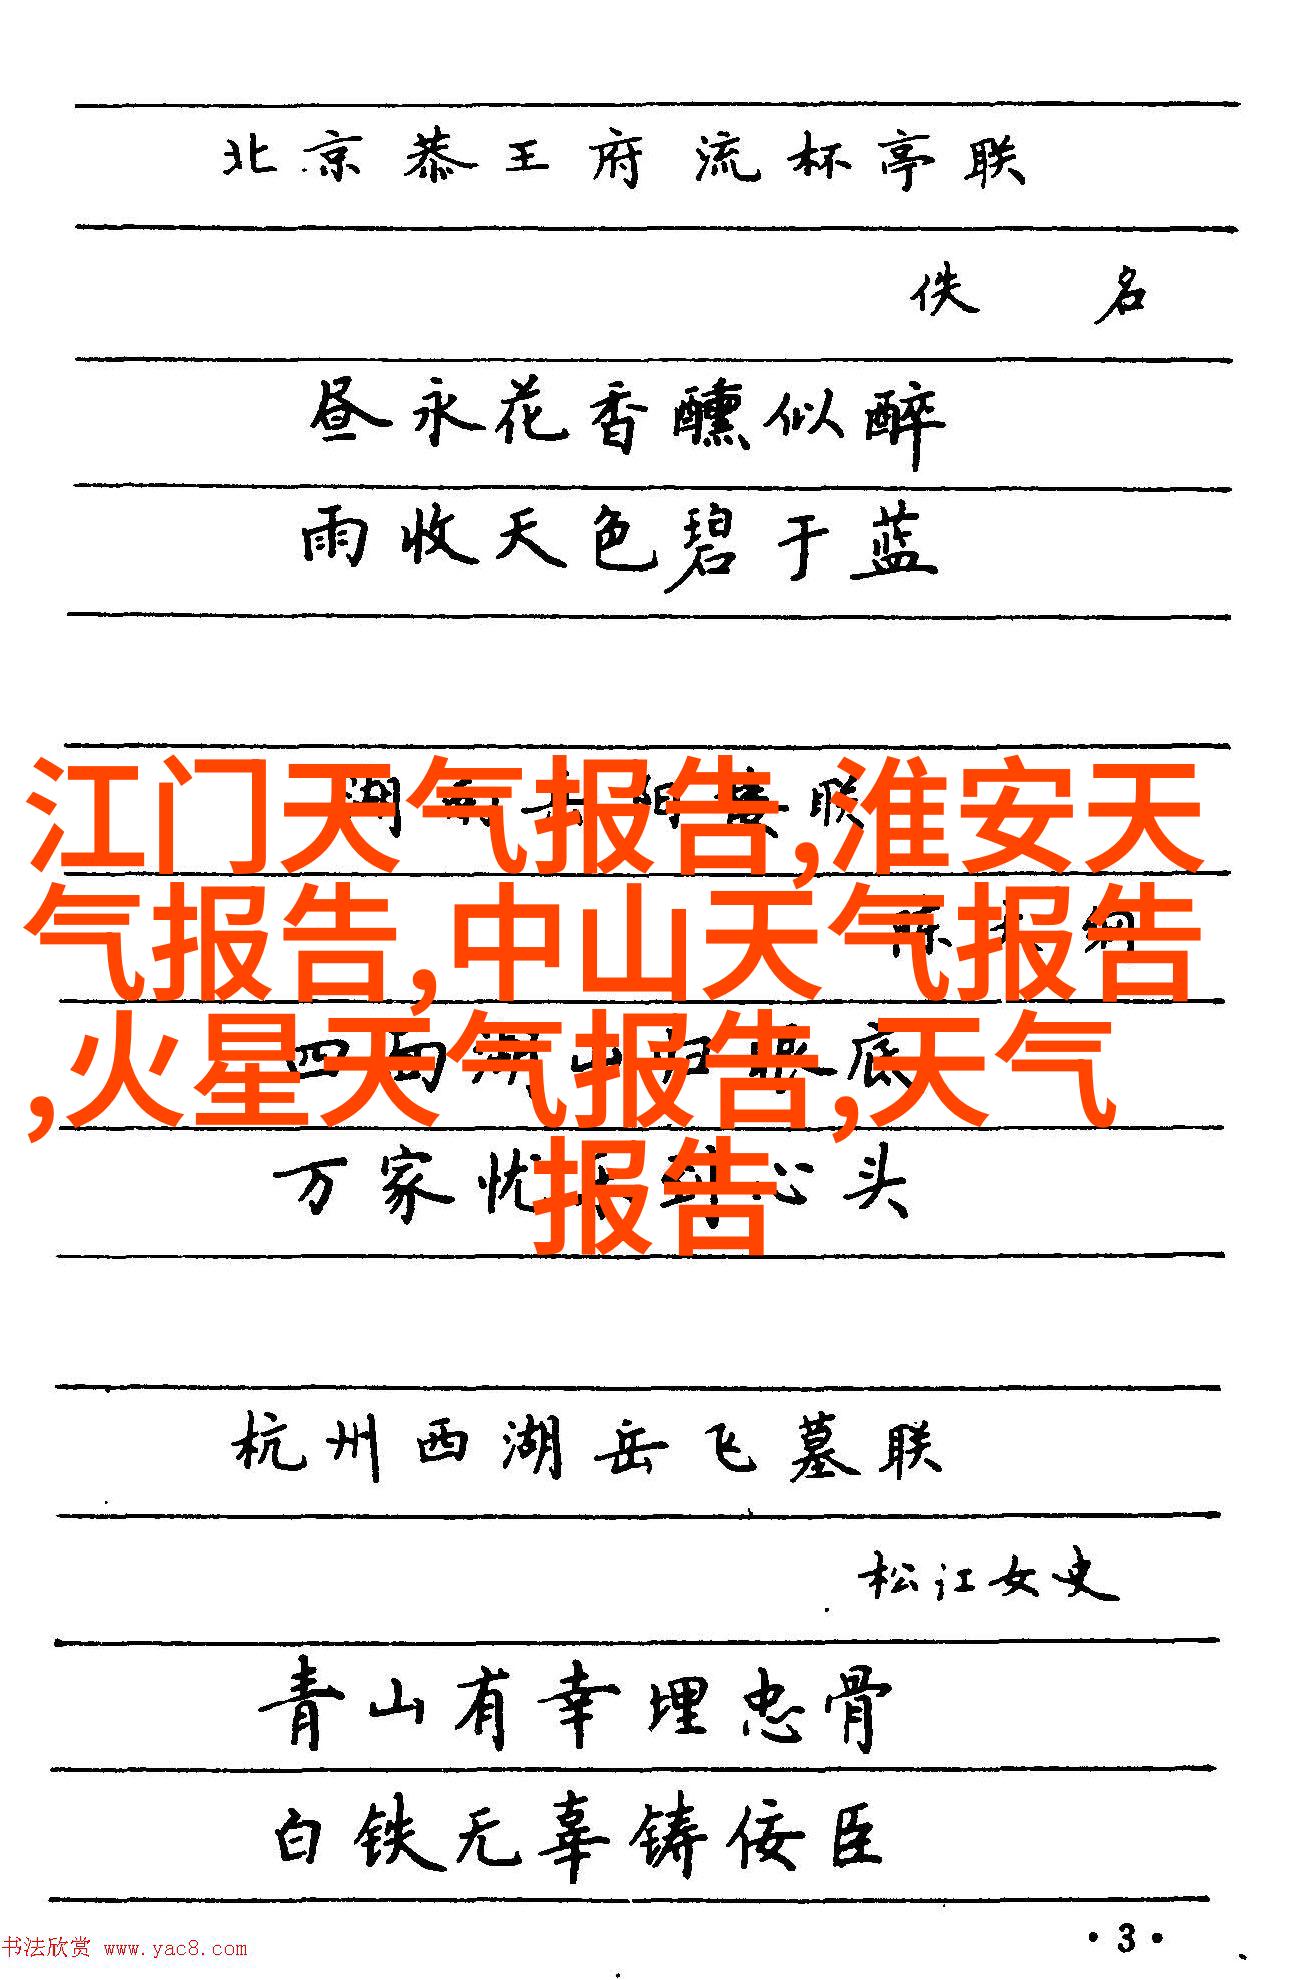 北京恭王府流杯亭联
佚 名
昼永花香醺似醉
雨收天色碧于蓝
湖南岳阳楼联
陈大纲
四面湖山归眼底
万家忧乐到心头
江门天气报告,淮安天
气报告,中山天气报告
,火星天气报告,天气
报告
杭州西湖岳飞墓联
松江女史
青山有幸埋忠骨
白铁无辜铸佞臣
·3·
书法欣赏 www.yac8.com